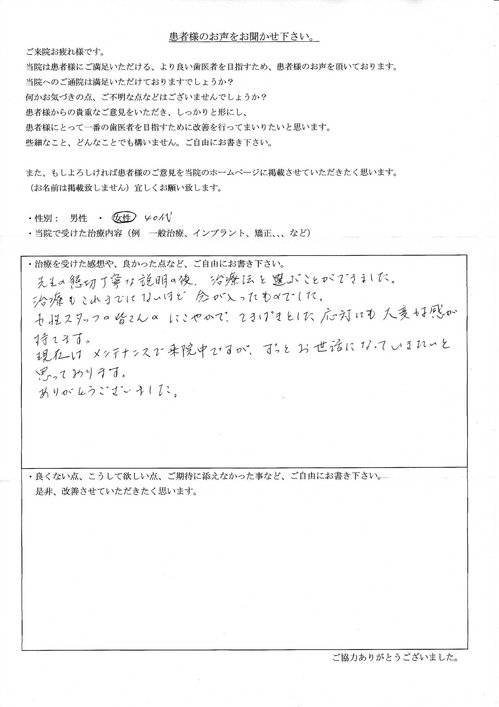 患者様のお声をお聞かせ下さい。
ご来院お疲れ様です。
当院は患者様にご満足いただける、より良い歯医者を目指すため、患者様のお声を頂いております。
当院へのご通院は満足いただけておりますでしょうか？
何かお気づきの点、ご不明な点などはございませんでしょうか？
患者様からの貴重なご意見をいただき、しっかりと形にし、
患者様にとって一番の歯医者を目指すために改善を行ってまいりたいと思います。
些細なこと、どんなことでも構いません。ご自由にお書き下さい。
また、もしよろしければ患者様のご意見を当院のホームページに掲載させていただきたく思います。
（お名前は掲載致しません）宜しくお願い致します。
・性別： 男性 ・ 女性 40代
・当院で受けた治療内容（例 一般治療、インプラント、矯正、、、など）
・治療を受けた感想や、良かった点など、ご自由にお書き下さい。
先生の懇切丁寧な説明の後、治療法を選ぶことができました。
治療もこれまでにないほど念が入ったものでした。
女性スタッフの皆さんのにこやかで、てきぱきとした応対にも大変好感が
持てます。
現在はメンテナンスで来院中ですが、ずっとお世話になっていきたいと
思っております。
ありがとうございました。
・良くない点、こうして欲しい点、ご期待に添えなかった事など、ご自由にお書き下さい。
是非、改善させていただきたく思います。
ご協力ありがとうございました。